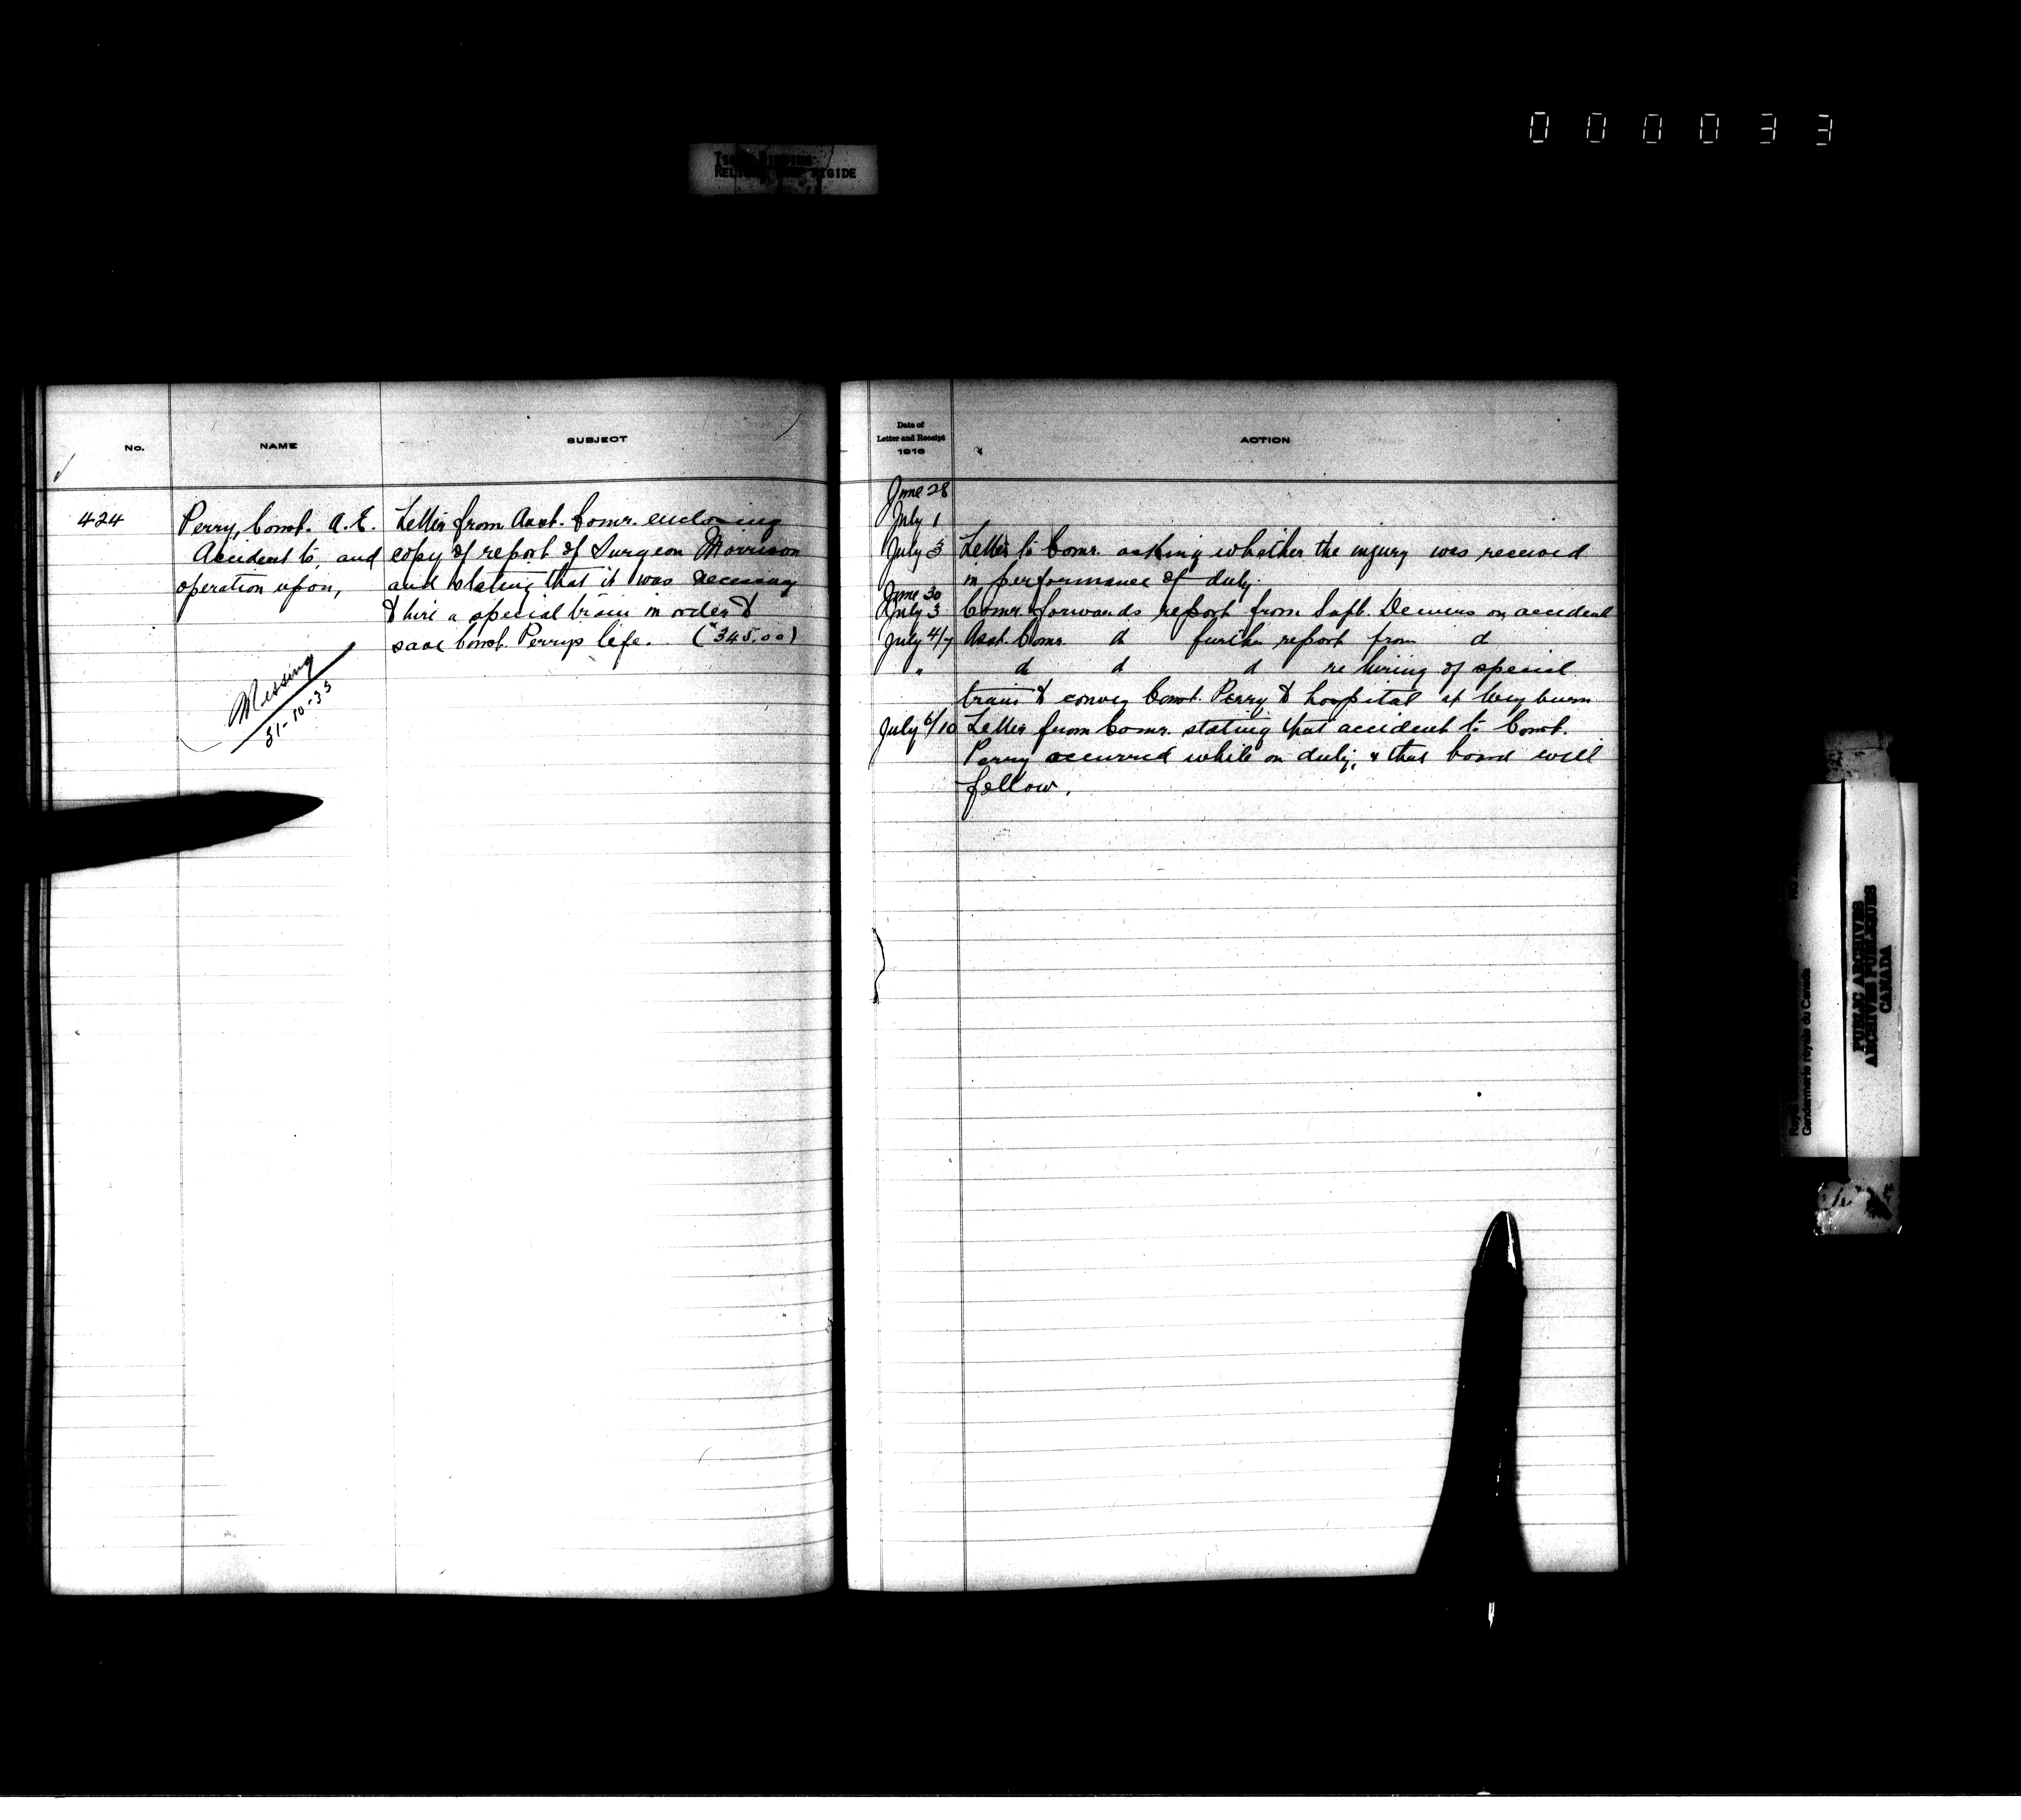 000033
No.
NAME
SUBJECT
424
Perry, Const. A.E.
Accident to, and
operation upon,
Letter from Asst. Comr. enclosing
copy of report of Surgeon Morrison
and stating that it was necessary
to hire a special train in order to
save Const. Perrys life. ($345.00)
Missing
31-10-33
Date of
Letter and Receipt
1916
ACTION
June 28
July 1
July 3 Letter to Comr. asking whether the injury was received
in performance of duty.
June 30
July 3 Comr. forwards report from Supt. Demers on accident
July 4/7 Asst. Comr. do further report from do
" do do do re hiring of special
train to convey Const. Perry to hospital at Weyburn
July 6/10 Letter from Comr. stating that accident to Const.
Perry occurred while on duty, & that board will
follow.
PUBLIC ARCHIVES
ARCHIVES PUBLIQUES
CANADA
Gendarmerie royale du Canada